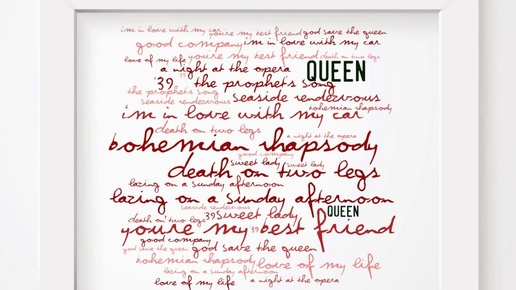 i'm in love with my car you're my best friend god save the queen
good company i'm in love with my car
love of my life you're my best friend death on two legs
a night at the opera QUEEN
'39 the prophet's song
seaside rendezvous seaside rendezvous
i'm in love with my car bohemian rhapsody
death on two legs a night at the opera
bohemian rhapsody
good company
death on two legs
sweet lady sweet lady
lazing on a sunday afternoon
lazing on a sunday afternoon
seaside rendezvous QUEEN
death on two legs '39 sweet lady
you're my '39 best friend
good company
god save the queen god save the queen
bohemian rhapsody love of my life
lazing on a sunday afternoon
love of my life a night at the opera